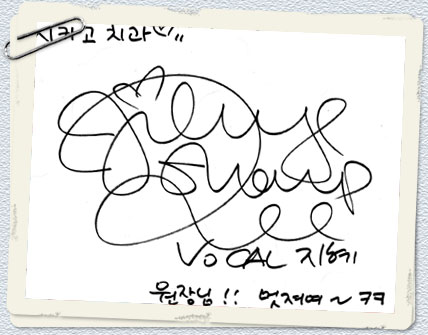 시카고 치과
Sharp
VOCAL 지혜
원장님!! 멋져여~ ㅋㅋ